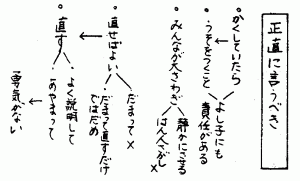 正直に言うべき
。かくしていたら
よし子にも
責任がある
。うそをつくこと
。みんなが大さわぎ
静かにさせる
はん人さがし×
。直せばよい
だまって×
だまって直すだけ
ではだめ
。直す
よく説明して
あやまって
勇気がない